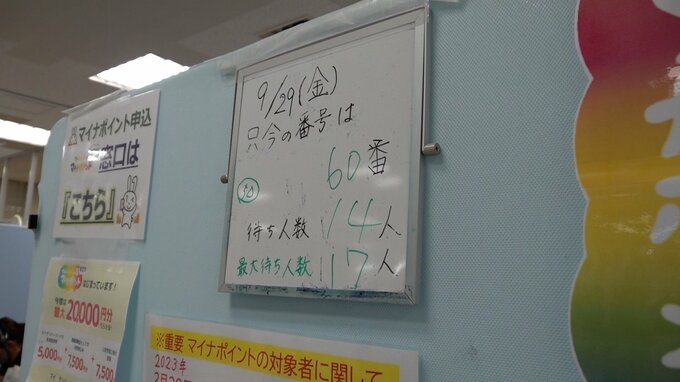 マイナポイント申込
窓口は
『こちら』
9/29(金)
只今の番号は
60番
待ち人数 14人
最大待ち人数 17人
はじまっています!
最大20000円分
5,000円分
7,500円分
7,500
※重要 マイナポイントの対象者に関して
2023年